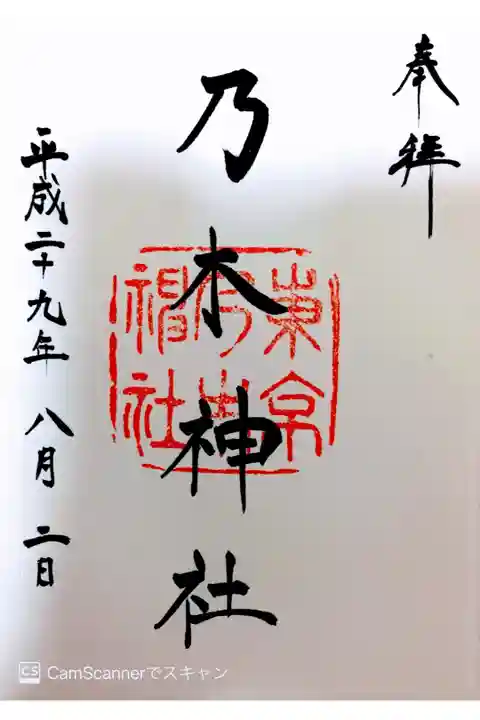 奉拝
乃木神社
東京
乃木
神社
平成二十九年 八月 二日
CS CamScannerでスキャン